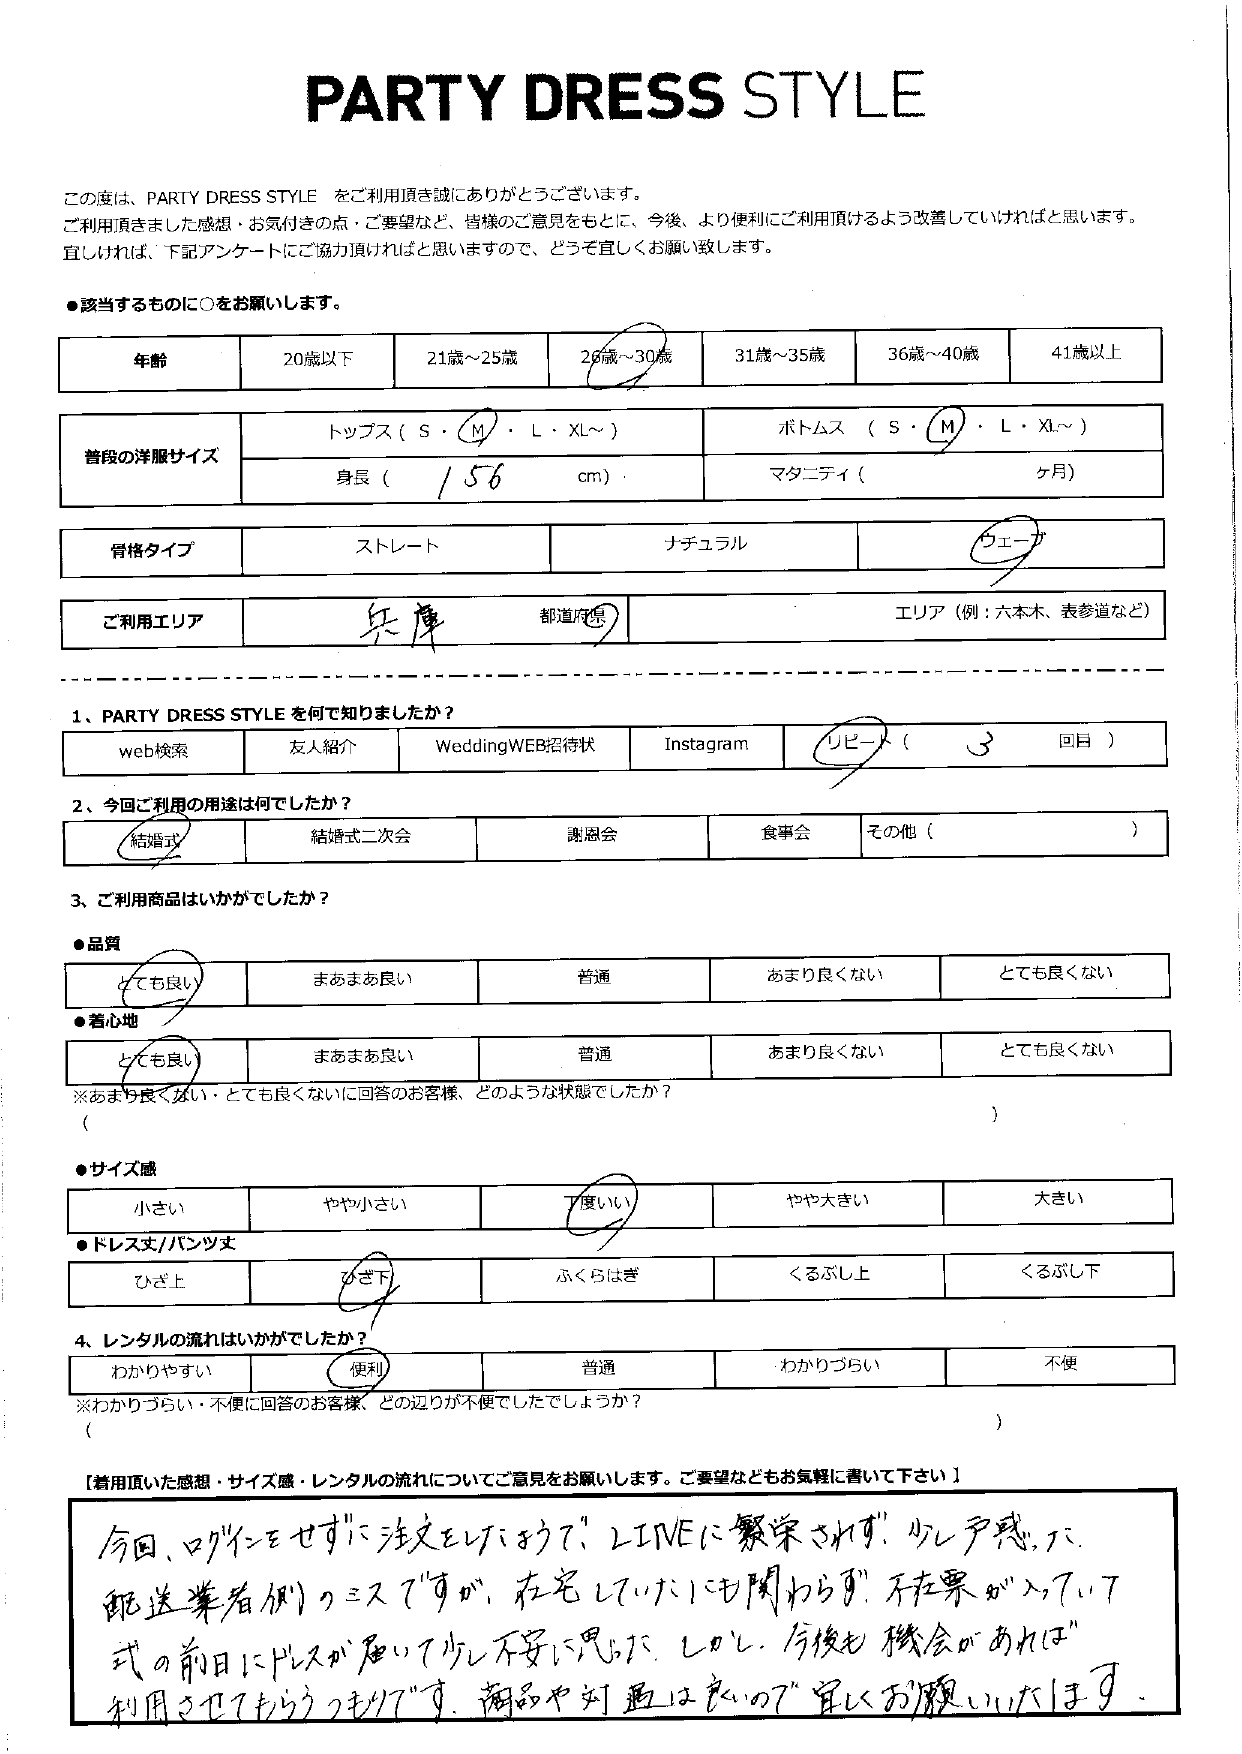 PARTY DRESS STYLE
この度は、PARTY DRESS STYLE をご利用頂き誠にありがとうございます。
ご利用頂きました感想・お気付きの点・ご要望など、皆様のご意見をもとに、今後、より便利にご利用頂けるよう改善していければと思います。
宜しければ、下記アンケートにご協力頂ければと思いますので、どうぞ宜しくお願い致します。
●該当するものに○をお願いします。
年齢 20歳以下 21歳～25歳 26歳～30歳 31歳～35歳 36歳～40歳 41歳以上
普段の洋服サイズ トップス ( S ・ M ・ L ・ XL～ ) ボトムス ( S ・ M ・ L ・ XL～ )
身長 ( 156 cm) マタニティ ( ヶ月)
骨格タイプ ストレート ナチュラル ウェーブ
ご利用エリア 兵庫 都道府県 エリア（例：六本木、表参道など）
1、PARTY DRESS STYLE を何で知りましたか？
web検索 友人紹介 WeddingWEB招待状 Instagram リピート ( 3 回目 )
2、今回ご利用の用途は何でしたか？
結婚式 結婚式二次会 謝恩会 食事会 その他 ( )
3、ご利用商品はいかがでしたか？
●品質
とても良い まあまあ良い 普通 あまり良くない とても良くない
●着心地
とても良い まあまあ良い 普通 あまり良くない とても良くない
※あまり良くない・とても良くないに回答のお客様、どのような状態でしたか？
( )
●サイズ感
小さい やや小さい 丁度いい やや大きい 大きい
●ドレス丈/パンツ丈
ひざ上 ひざ下 ふくらはぎ くるぶし上 くるぶし下
4、レンタルの流れはいかがでしたか？
わかりやすい 便利 普通 わかりづらい 不便
※わかりづらい・不便に回答のお客様、どの辺りが不便でしたでしょうか？
( )
【着用頂いた感想・サイズ感・レンタルの流れについてご意見をお願いします。ご要望などもお気軽に書いて下さい 】
今回、ログインをせずに注文をしたようで、LINEに繁栄されず、少し戸惑った.
配送業者側のミスですが、在宅していたにも関わらず、不在票が入っていて
式の前日にドレスが届いて少し不安に思った. しかし、今後も機会があれば
利用させてもらうつもりです. 商品や対遇は良いので宜しくお願いいたします.